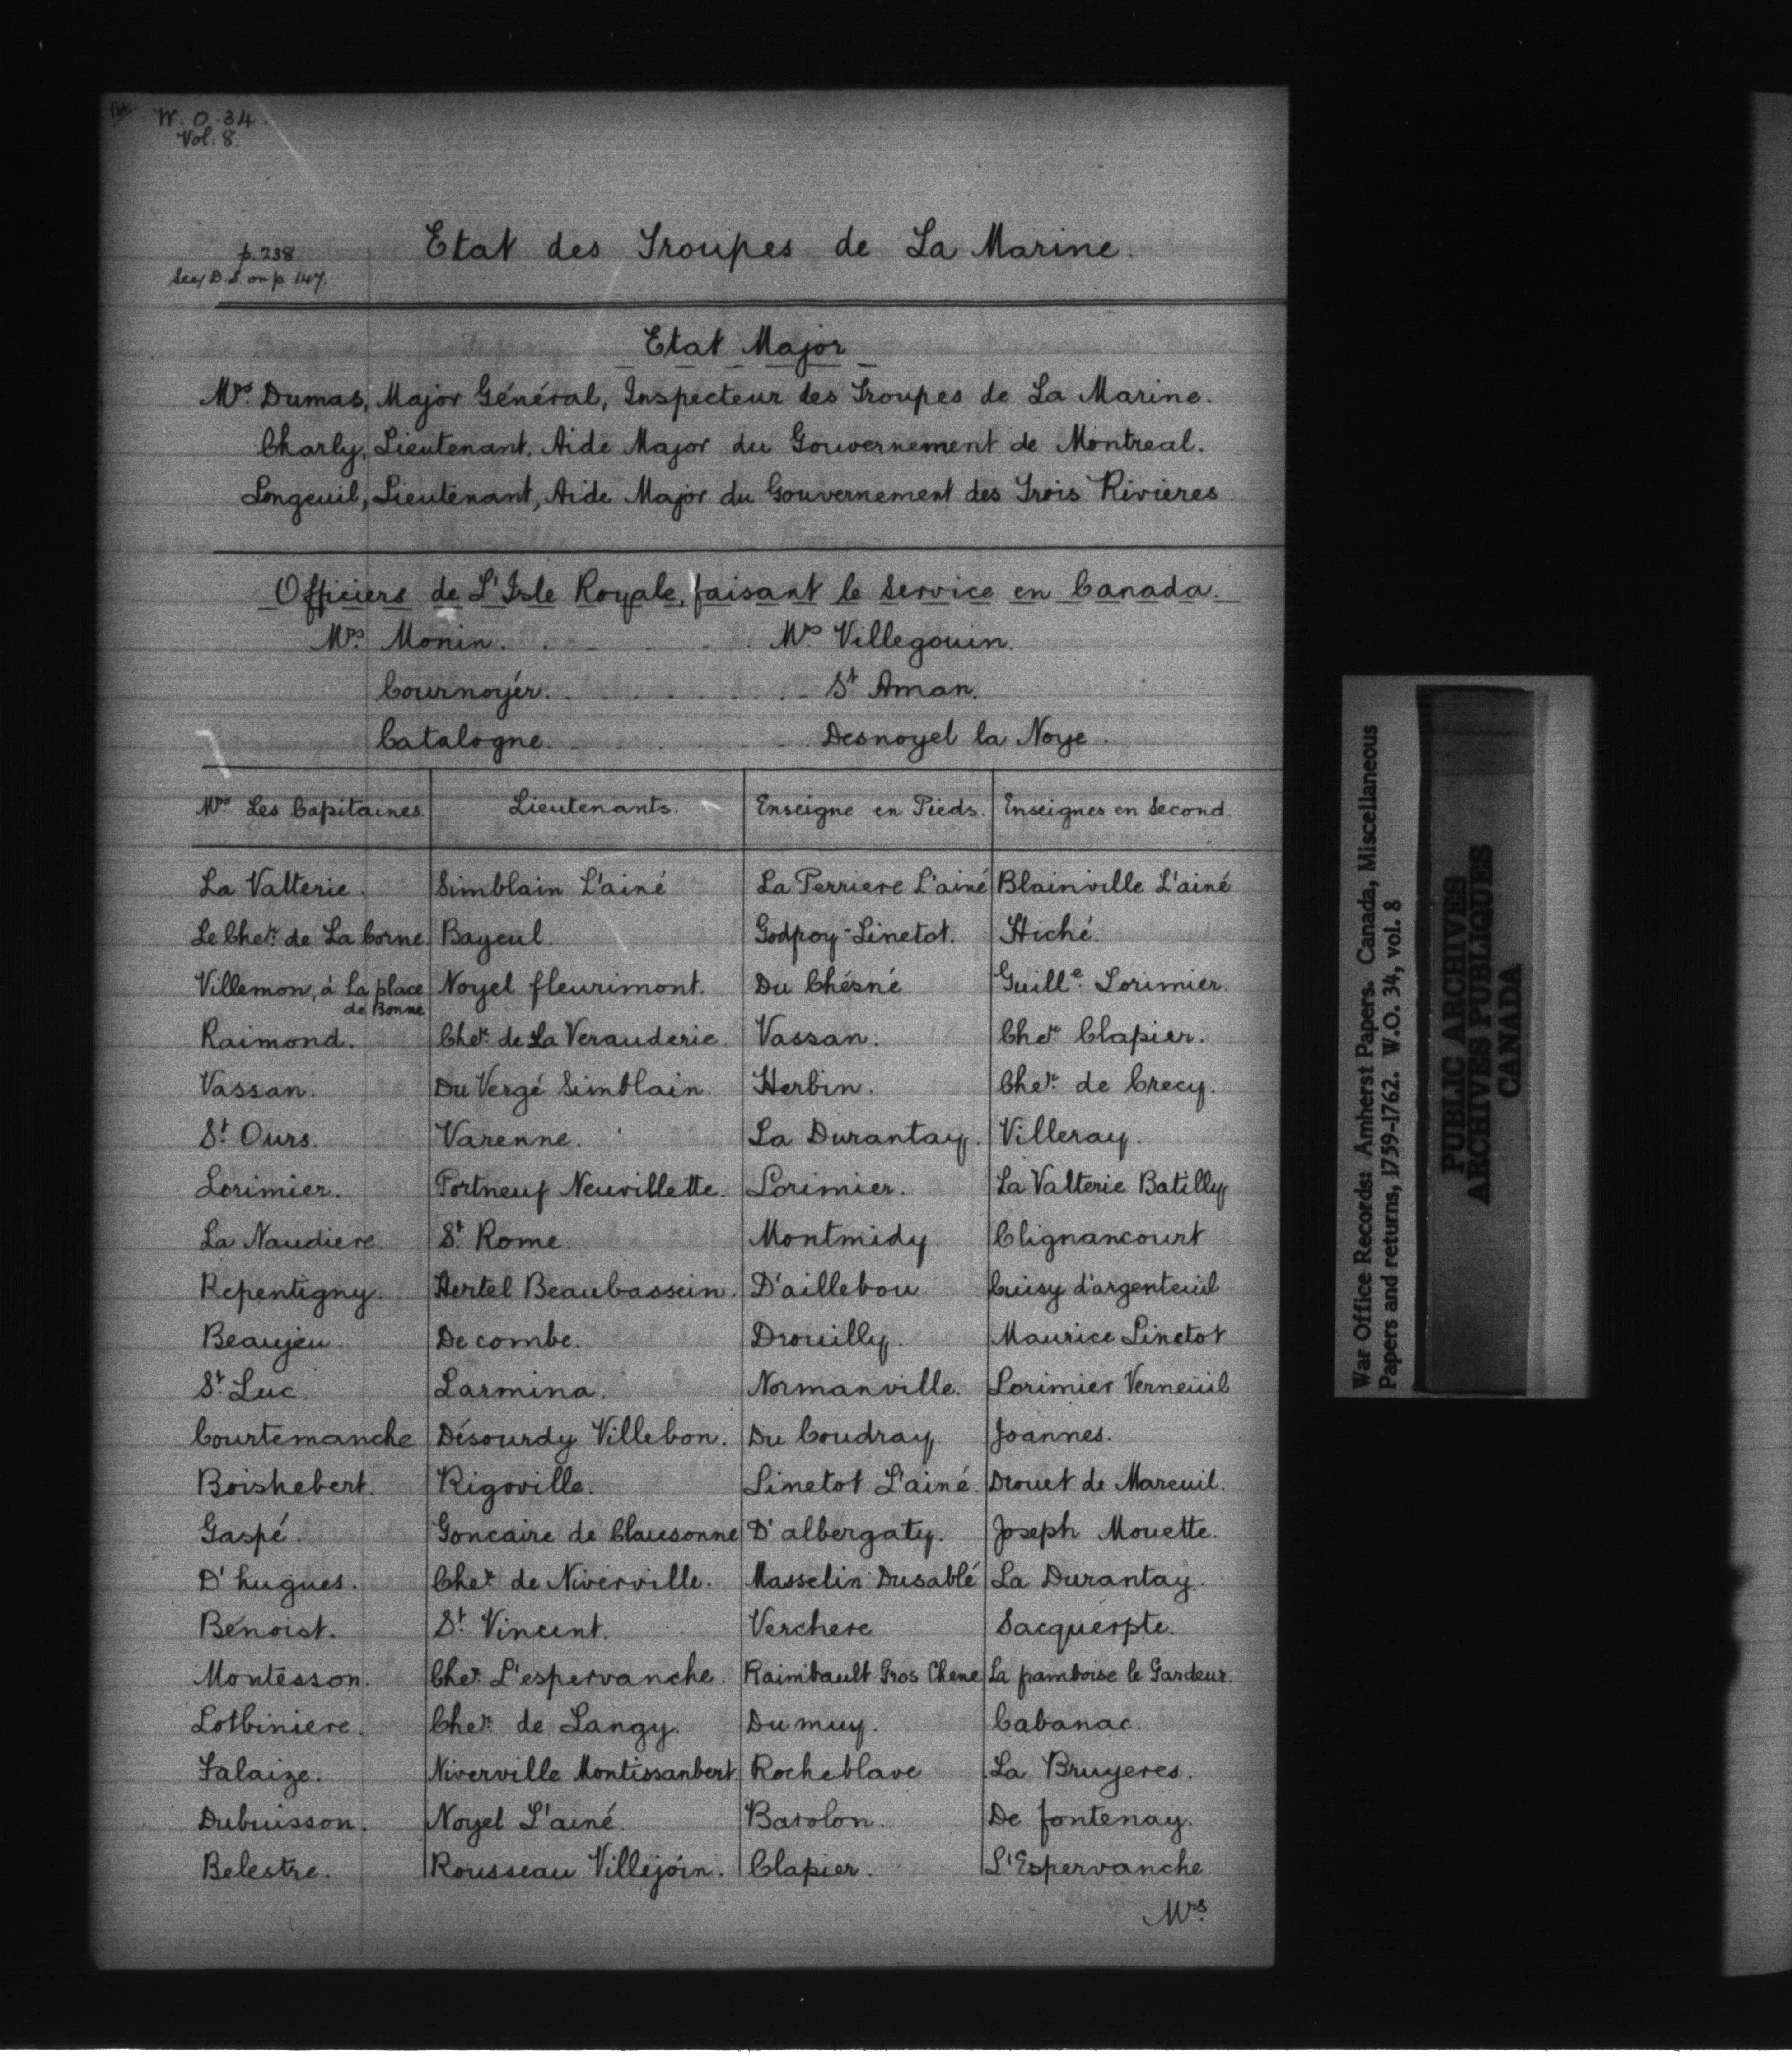 W. O. 34.
Vol. 8.
p. 238
See D.S. on p 147.
Etat des Troupes de La Marine.
Etat Major
Mrs. Dumas, Major Général, Inspecteur des Troupes de La Marine.
Charly, Lieutenant, Aide Major du Gouvernement de Montreal.
Longeuil, Lieutenant, Aide Major du Gouvernement des Trois Rivieres.
Officiers de L'Isle Royale, faisant le Service en Canada.
Mrs. Monin. Mrs Villegouin.
Cournoyér. St Aman.
Catalogne. Desnoyel la Noye.
Mrs Les Capitaines. Lieutenants. Enseigne en Pieds. Enseignes en Second.
La Valterie. Simblain L'ainé La Perriere L'ainé Blainville L'ainé
Le Cher. de La Corne Bayeul. Godfroy-Linetot. Hiché.
Villemon, à la place de Bonne Noyel fleurimont. Du Chésné Guille. Lorimier.
Raimond. Cher. de La Verauderie Vassan. Cher Clapier.
Vassan. Du Vergé Simblain. Herbin. Cher. de Crecy.
St. Ours. Varenne. La Durantay. Villeray.
Lorimier. Portneuf Neuvillette. Lorimier. La Valterie Batilly
La Naudiere. St. Rome. Montmidy. Clignancourt
Repentigny. Hertel Beaubassein. D'aillebou Cuisy d'argenteüil
Beaujeu. Decombe. Drouilly. Maurice Linetot
St. Luc. Larmina. Normanville. Lorimier Verneüil
Courtemanche Désourdy Villebon. Du Coudray. Joannes.
Boishebert. Rigoville. Linetot L'ainé. Drouet de Mareuil.
Gaspé. Goncaire de Clausonne D'albergaty. Joseph Mouette.
D'hugues. Cher. de Niverville. Masselin Dusablé La Durantay.
Benoist. St. Vincent. Verchere Sacquerpée.
Montesson. Cher. L'espervanche. Raimbault Gros Chene La framboise le Gardeur.
Lotbiniere. Cher. de Langy. Dumuy. Cabanac.
Falaize. Niverville Montissanbert. Rocheblave La Bruyeres.
Dubuisson. Noyel L'ainé. Barolon. De fontenay.
Belestre. Rousseau Villejoin. Clapier. L'Espervanche
Mrs.
War Office Records: Amherst Papers. Canada, Miscellaneous
Papers and returns, 1759-1762. W.O. 34, vol. 8
PUBLIC ARCHIVES
ARCHIVES PUBLIQUES
CANADA